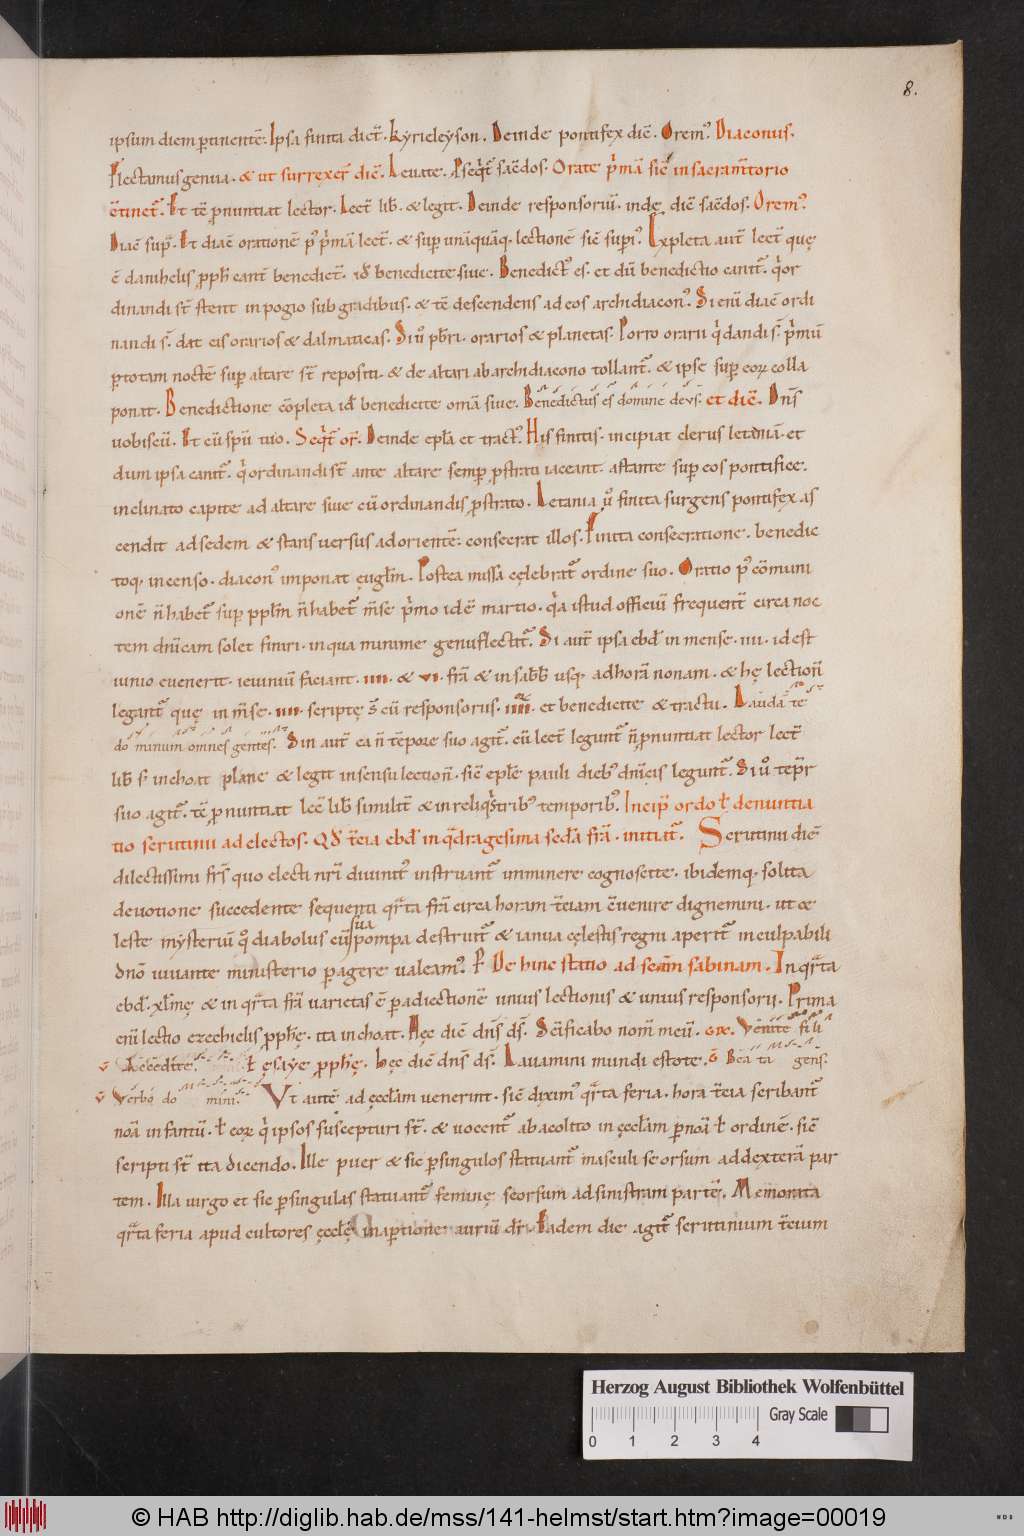 8.
ipsum diem ꝑtinentē. Ipsa finita dicit̄. kẏrieleẏson. Deinde pontifex dic̄. Orem᷒. Diaconus.
Flectamus genua. & ut surrexer̄ dic̄. Leuate. Seq̇t̄ sac̄dos. Orate p̄mā sic̄ in sacram̄torio
c̄tinet̄. Et tc̄ ꝓnuntiat lector. Lect̄ lib̄. & legit. Deinde responsoriū. inde dic̄ sac̄dos. Orem᷒.
Diac̄ sup̄. Et diac̄ orationē p᷒ p̄mā lect̄. & suꝑ unāquāq. lectionē sic̄ supi᷒. Expleta aut̄ lect̄ quę
ē danihelis ꝓph̄ cant̄ benedict̄. id̄ benedicite siue. Benedict᷒ es. et dū benedictio canit̄. q̇ or
dinandi st̄ stent in pogio sub gradibus. & tc̄ descendens ad eos archidiacon᷒. Si eni diac̄ ordi
nandi s̄. dat eis orarios & dalmaticas. Si u᷒ pb̄ri. orarios & planetas. Porro orarii q̇ dandi s̄. p̄mū
ꝑ totam noctē suꝑ altare st̄ repositi. & de altari ab archidiacono tollant̄. & ipse suꝑ eoꝝ colla
ponat. Benedictione cōpleta id̄ benedicite omā siue. Benedictus es domine deus. et dic̄. Dn̄s
uobiscū. Et cū spū tuo. Seq̇t̄ or̄. Deinde epl̄a et tract᷒. His finitis. incipiat clerus letaniā. et
dum ipsa canit̄. q̇ ordinandi st̄ ante altare semꝑ ꝓstrati iaceant. astante suꝑ eos pontifice.
inclinato capite ad altare siue cū ordinandis ꝓstrato. Letania u᷒ finita surgens pontifex as
cendit ad sedem & stans uersus ad orientē. consecrat illos. Finita consecratione. benedic
toq. incenso. diacon᷒ imponat ęugl̄m. Postea missa cęlebrat̄ ordine suo. Oratio p᷒ cōmuni
onē n̄ habet̄ suꝑ ppl̄m n̄ habet̄ m̄se p̄mo idē martio. q̇a istud officiū frequent̄ circa noc
tem dn̄icam solet finiri. in qua minime genuflectit̄. Si aut̄ ipsa ebd̄ in mense. iiii. id est
iunio euenerit. ieiuniū faciant. iiii. & vi. fr̄a & in sab̄b usq. ad horā nonam. & hę lection̄
legant̄ quę in m̄se. iiii. scriptę s̄ cū responsorus. iiii. et benedicite & tractu. Laudat̄ te
dominum omnes gentes. Sin aut̄ ea n̄ tēpore suo agit̄. cū lect̄ legunt̄ n̄ ꝓnuntiat lector lect̄
lib̄ s; inchoat plane & legit in sensu lection̄. sic̄ epl̄e pauli dieb᷒ dn̄icis legunt̄. Si u᷒ tēpr̄
suo agit̄. tc̄ ꝓnuntiat lec̄ lib̄ similit̄ & in reliq̇s trib᷒ temporib᷒. Incip̄ ordo ł denuntia
tio scrutinii ad electos. Qd̄ t̄cia ebd̄ in q̄dragesima sed̄a fr̄a. initiat̄. Scrutinii diē
dilectissimi fr̄s quo electi nr̄i diuinit᷒ instruant̄ imminere cognoscite. ibidemq. solita
deuotione succedente sequenti qr̄ta fr̄a circa horam t̄ciam c̄uenire dignemini. ut cę
leste mẏsteriū q᷒ diabolus cū sua pompa destruit̄ & ianua cęlestis regni aperit̄ inculpabili
dn̄o iuuante ministerio ꝑagere ualeam᷒. De hinc statio ad sc̄am sabinam. In qr̄ta
ebd̄. xl̄me & in qr̄ta fr̄a uarietas ē ꝑ adictionē unius lectionis & unius responsorii. Prima
eni lectio ezechielis ꝓph̄ę. ita inchoat. Hęc dic̄ dn̄s ds̄. Sc̄ificabo nom̄ meū. Venite filii
Accedite. ł ęsaẏę ꝓph̄ę. Hęc dic̄ dn̄s ds̄. Lauamini mundi estote. Bēa ta gens.
Verbo do mini. Vt autē ad ęcclā̄m uenerint. sic̄ dixim᷒ qr̄ta feria. hora t̄cia scribant̄
noā infantū. ł eoꝝ q̇ ipsos suscepturi st̄. & uocent̄ ab acolito in ęccl̄am ꝑ noā ł ordinē. sic̄
scripti st̄ ita dicendo. Ille puer & sic ꝑ singulos statuant̄ masculi seorsum ad dexterā par
tem. Illa uirgo et sic ꝑ singulas statuant̄ feminę seorsum ad sinistram partē. Memorata
qr̄ta feria apud cultores ęccl̄ę in aꝑtione auriū dr̄. Eadem die agit̄ scrutinium t̄cium
Herzog August Bibliothek Wolfenbüttel
Gray Scale
0 1 2 3 4
© HAB http://diglib.hab.de/mss/141-helmst/start.htm?image=00019